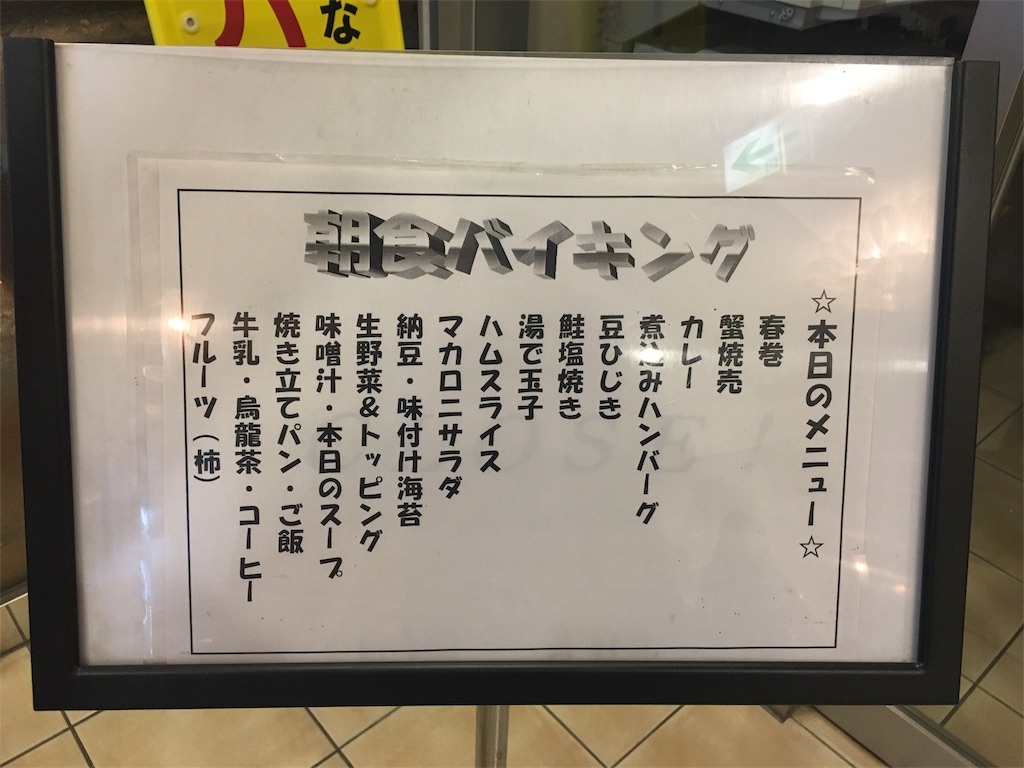 な
朝食バイキング
☆本日のメニュー☆
春巻
蟹焼売
カレー
煮込みハンバーグ
豆ひじき
鮭塩焼き
湯で玉子
ハムスライス
マカロニサラダ
納豆・味付け海苔
生野菜＆トッピング
味噌汁・本日のスープ
焼き立てパン・ご飯
牛乳・烏龍茶・コーヒー
フルーツ（柿）